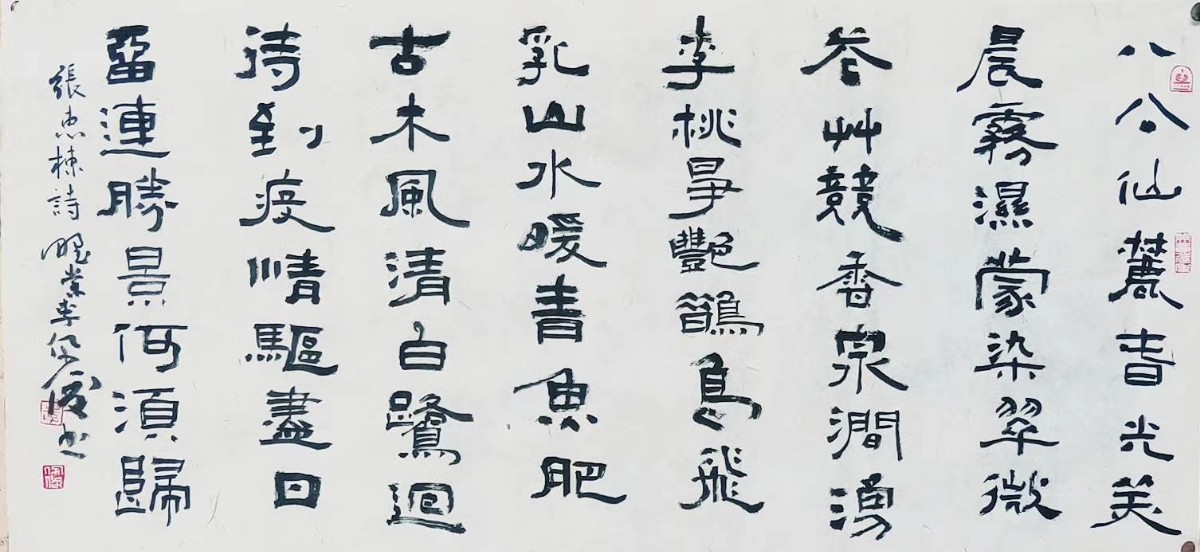 八公仙麓春光美
晨霧濕蒙染翠微
艸競香泉澗湧
李桃爭艷鵲鳥飛
乳山水暖青魚肥
古木風清白鷺迴
待到疫情驅盡日
畱連勝景何須歸
張忠棟詩 李